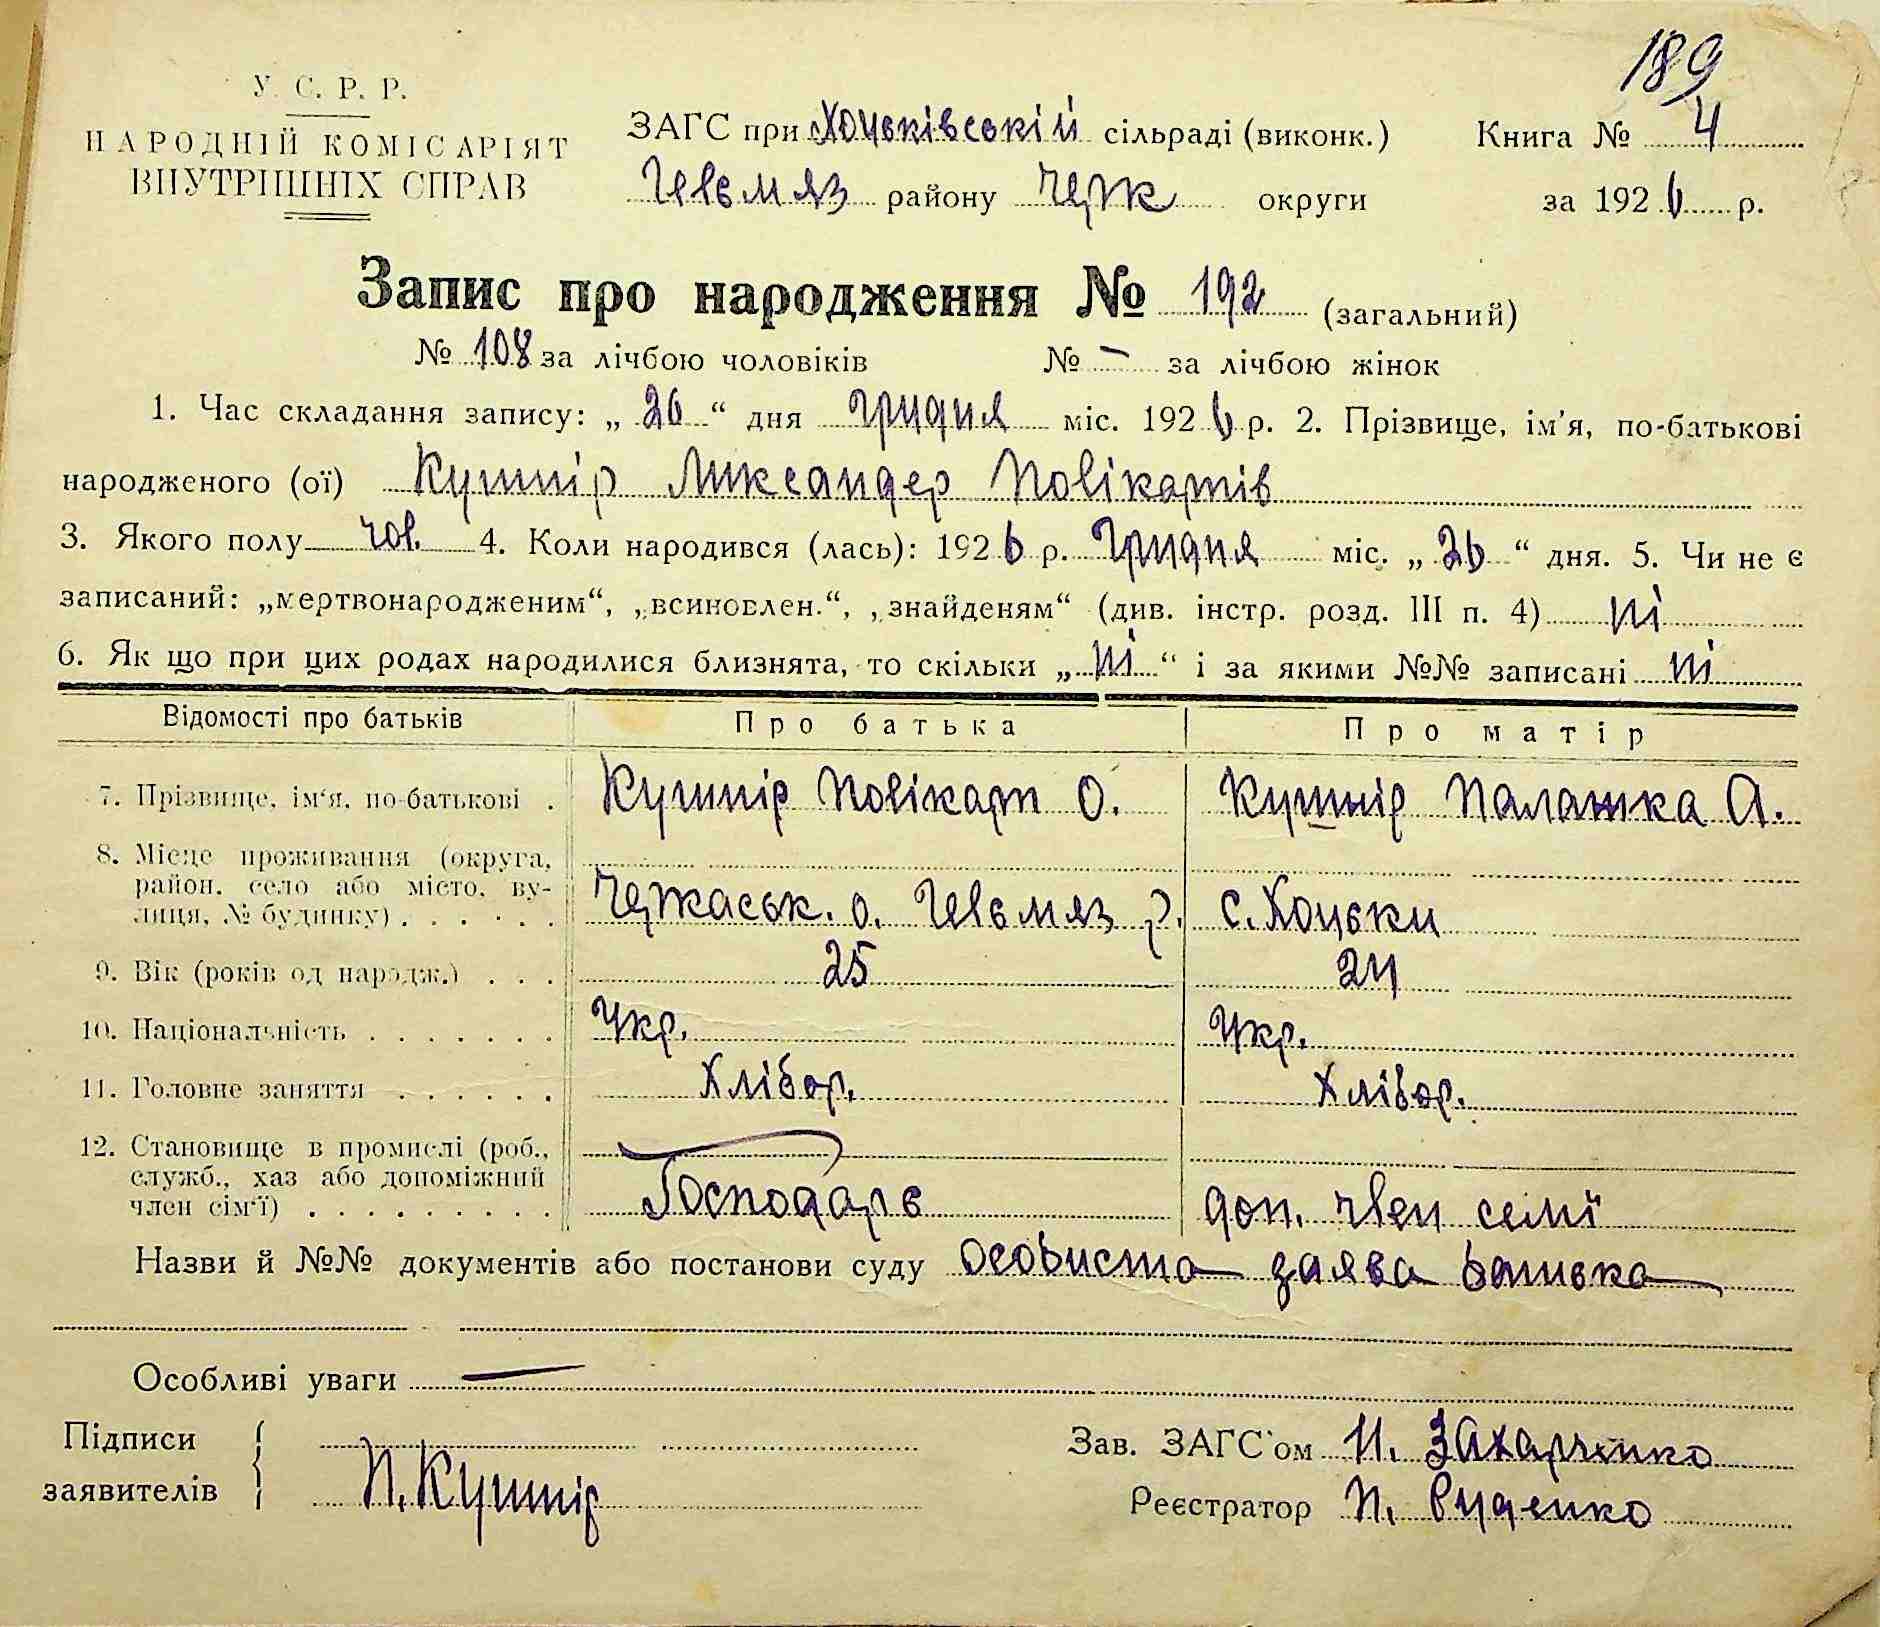 189
У. С. Р. Р.
НАРОДНІЙ КОМІСАРІЯТ
ВНУТРІШНІХ СПРАВ
ЗАГС при Хоцьківській сільраді (виконк.)
Гельмяз району Черк округи
Книга № 4
за 1926 р.
Запис про народження № 192 (загальний)
№ 108 за лічбою чоловіків № – за лічбою жінок
1. Час складання запису: „26“ дня Грудня міс. 1926 р. 2. Прізвище, ім'я, по-батькові
народженого (ої) Кушнір Ликсандер Полікартів
3. Якого полу чол. 4. Коли народився (лась): 1926 р. Грудня міс. „26“ дня. 5. Чи не є
записаний: „мертвонародженим“, „всиновлен.“, „знайденям“ (див. інстр. розд. III п. 4) ні
6. Як що при цих родах народилися близнята, то скільки „ні“ і за якими №№ записані ні
Відомості про батьків Про батька Про матір
7. Прізвище, ім'я, по-батькові . Кушнір Полікарт О. Кушнір Палашка А.
8. Місце проживання (округа,
район, село або місто, ву-
лиця, № будинку) . . . . . . Черкаськ. о. Гельмяз р. с. Хоцьки
9. Вік (років од народж.) . . . 25 24
10. Національність . . . . . . . Укр. Укр.
11. Головне заняття . . . . . . Хлібор. Хлібор.
12. Становище в промислі (роб.,
служб., хаз або допоміжний
член сім'ї) . . . . . . . . . Господарь доп. член семї
Назви й №№ документів або постанови суду особиста заява батька
Особливі уваги —
Підписи
заявителів
П. Кушнір
Зав. ЗАГС'ом И. Захарченко
Реєстратор П. Руденко